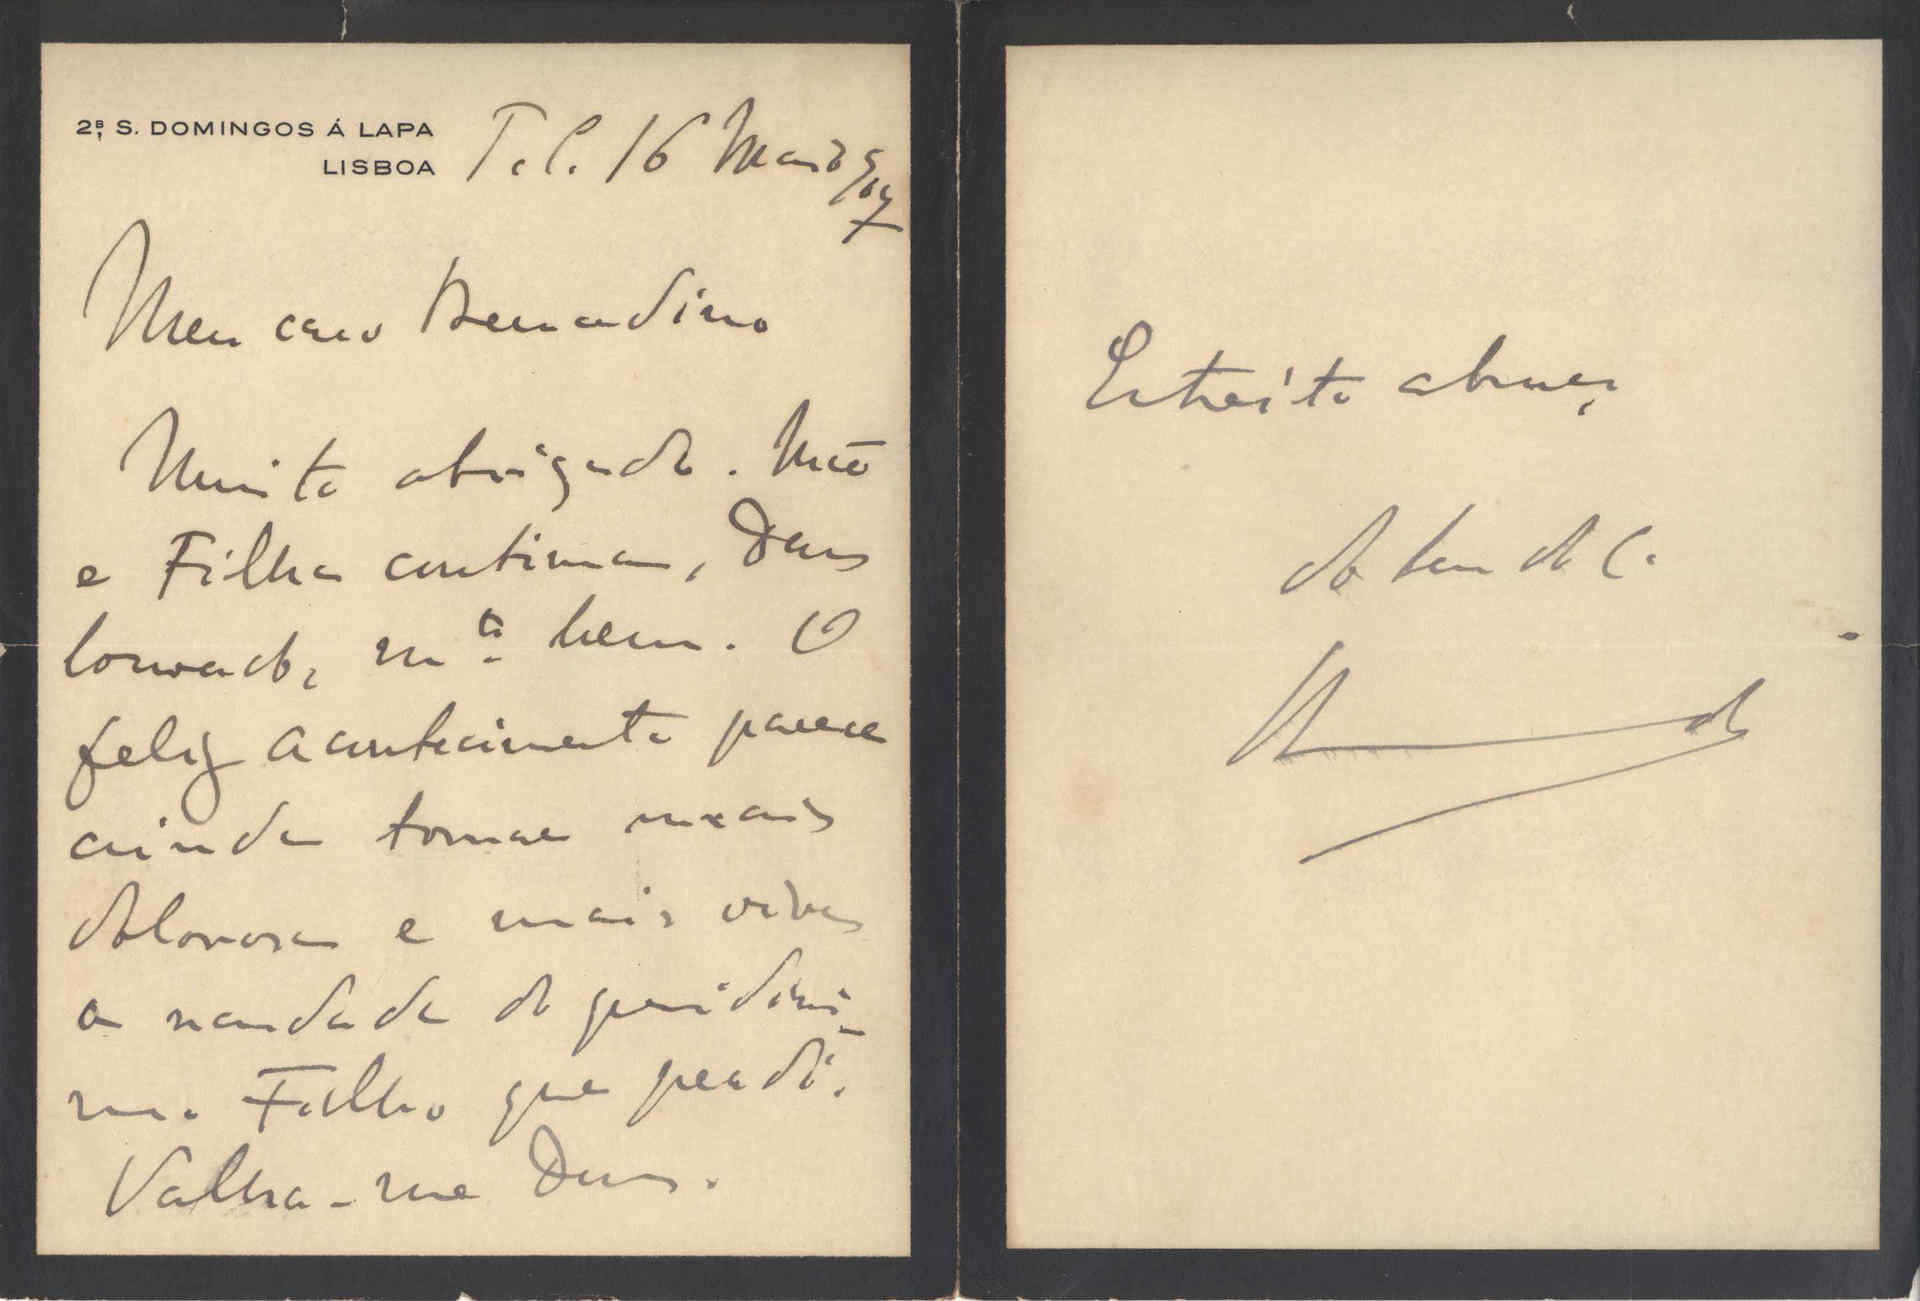 2B, S. DOMINGOS Á LAPA
LISBOA
T. C. 16 Março 907
Meu caro Bernardino
Muito obrigado. Mãe
e Filha continuam, Deus
louvado, m.ta bem. O
feliz acontecimento parece
ainda tornar mais
dolorosa e mais viva
a saudade do queridissi-
mo Filho que perdi.
Valha-me Deus.
Estreito abraço
do teu do C.